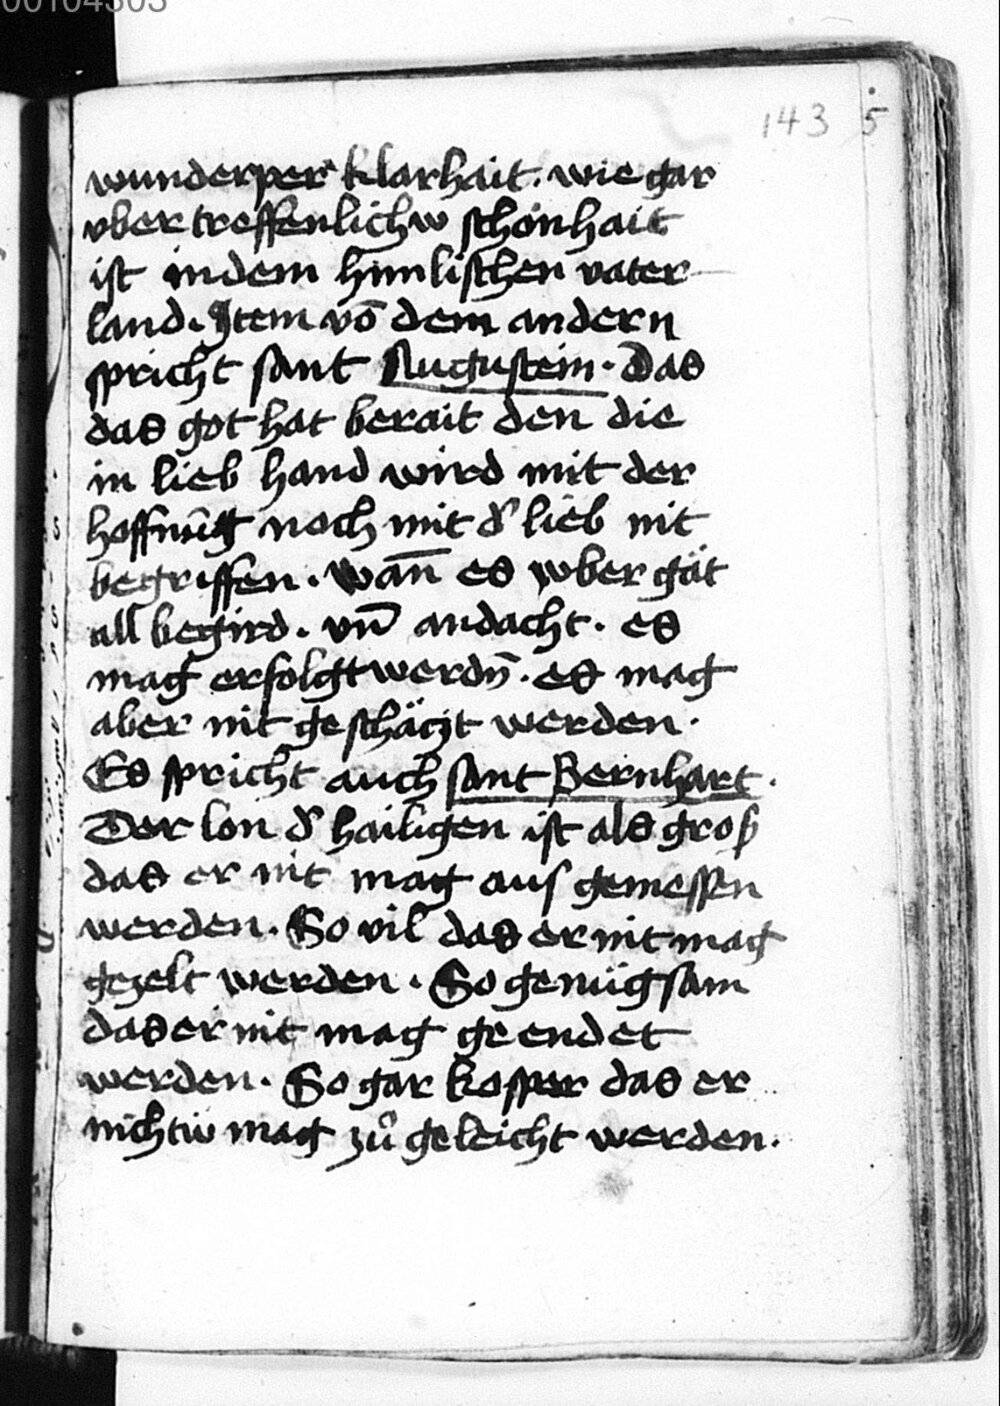 00104303
143 5
wunderper klarhait. wie gar
vbertreffenlichw schönhait
ist in dem himlischen vater
land. Item vō dem andern
spricht sant Augustein. Das
das got hat berait den die
in lieb hand wird mit der
hoffnūg noch mit d' lieb nit
begriffen. Wan̄ es wber gät
all begird. vn̄ andacht. es
mag erfolgt werdn̄. es mag
aber nit geschäczt werden.
Es spricht auch sant Bernhart.
Der lon d' hailigen ist als groß
das er nit mag aus gemessen
werden. So vil das er nit mag
gezelt werden. So genügsam
das er nit mag geendet
werden. So gar kosper das er
nichtw mag zů geleicht werden.